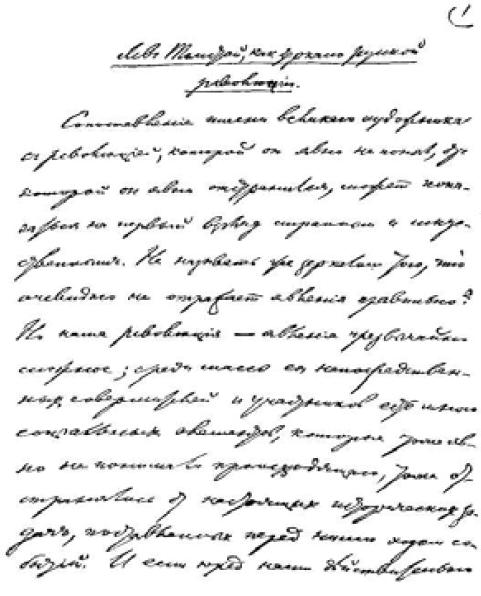 1
Лев Толстой, как зеркало русской
революціи.
Сопоставленіе имени великаго художника
с революціей, которой он явно не понял, от
которой он явно отстранился, может пока-
заться на первый взгляд странным и искус-
ственным. Не называть же зеркалом того, что
очевидно не отражает явленія правильно?
Но наша революція — явленіе чрезвычайно
сложное; среди массы ея непосредствен-
ных совершителей и участников есть много
соціальных элементов, которые тоже яв-
но не понимали происходящаго, тоже от-
странялись от настоящих исторических за-
дач, поставленных перед ними ходом со-
бытій. И если перед нами действительно